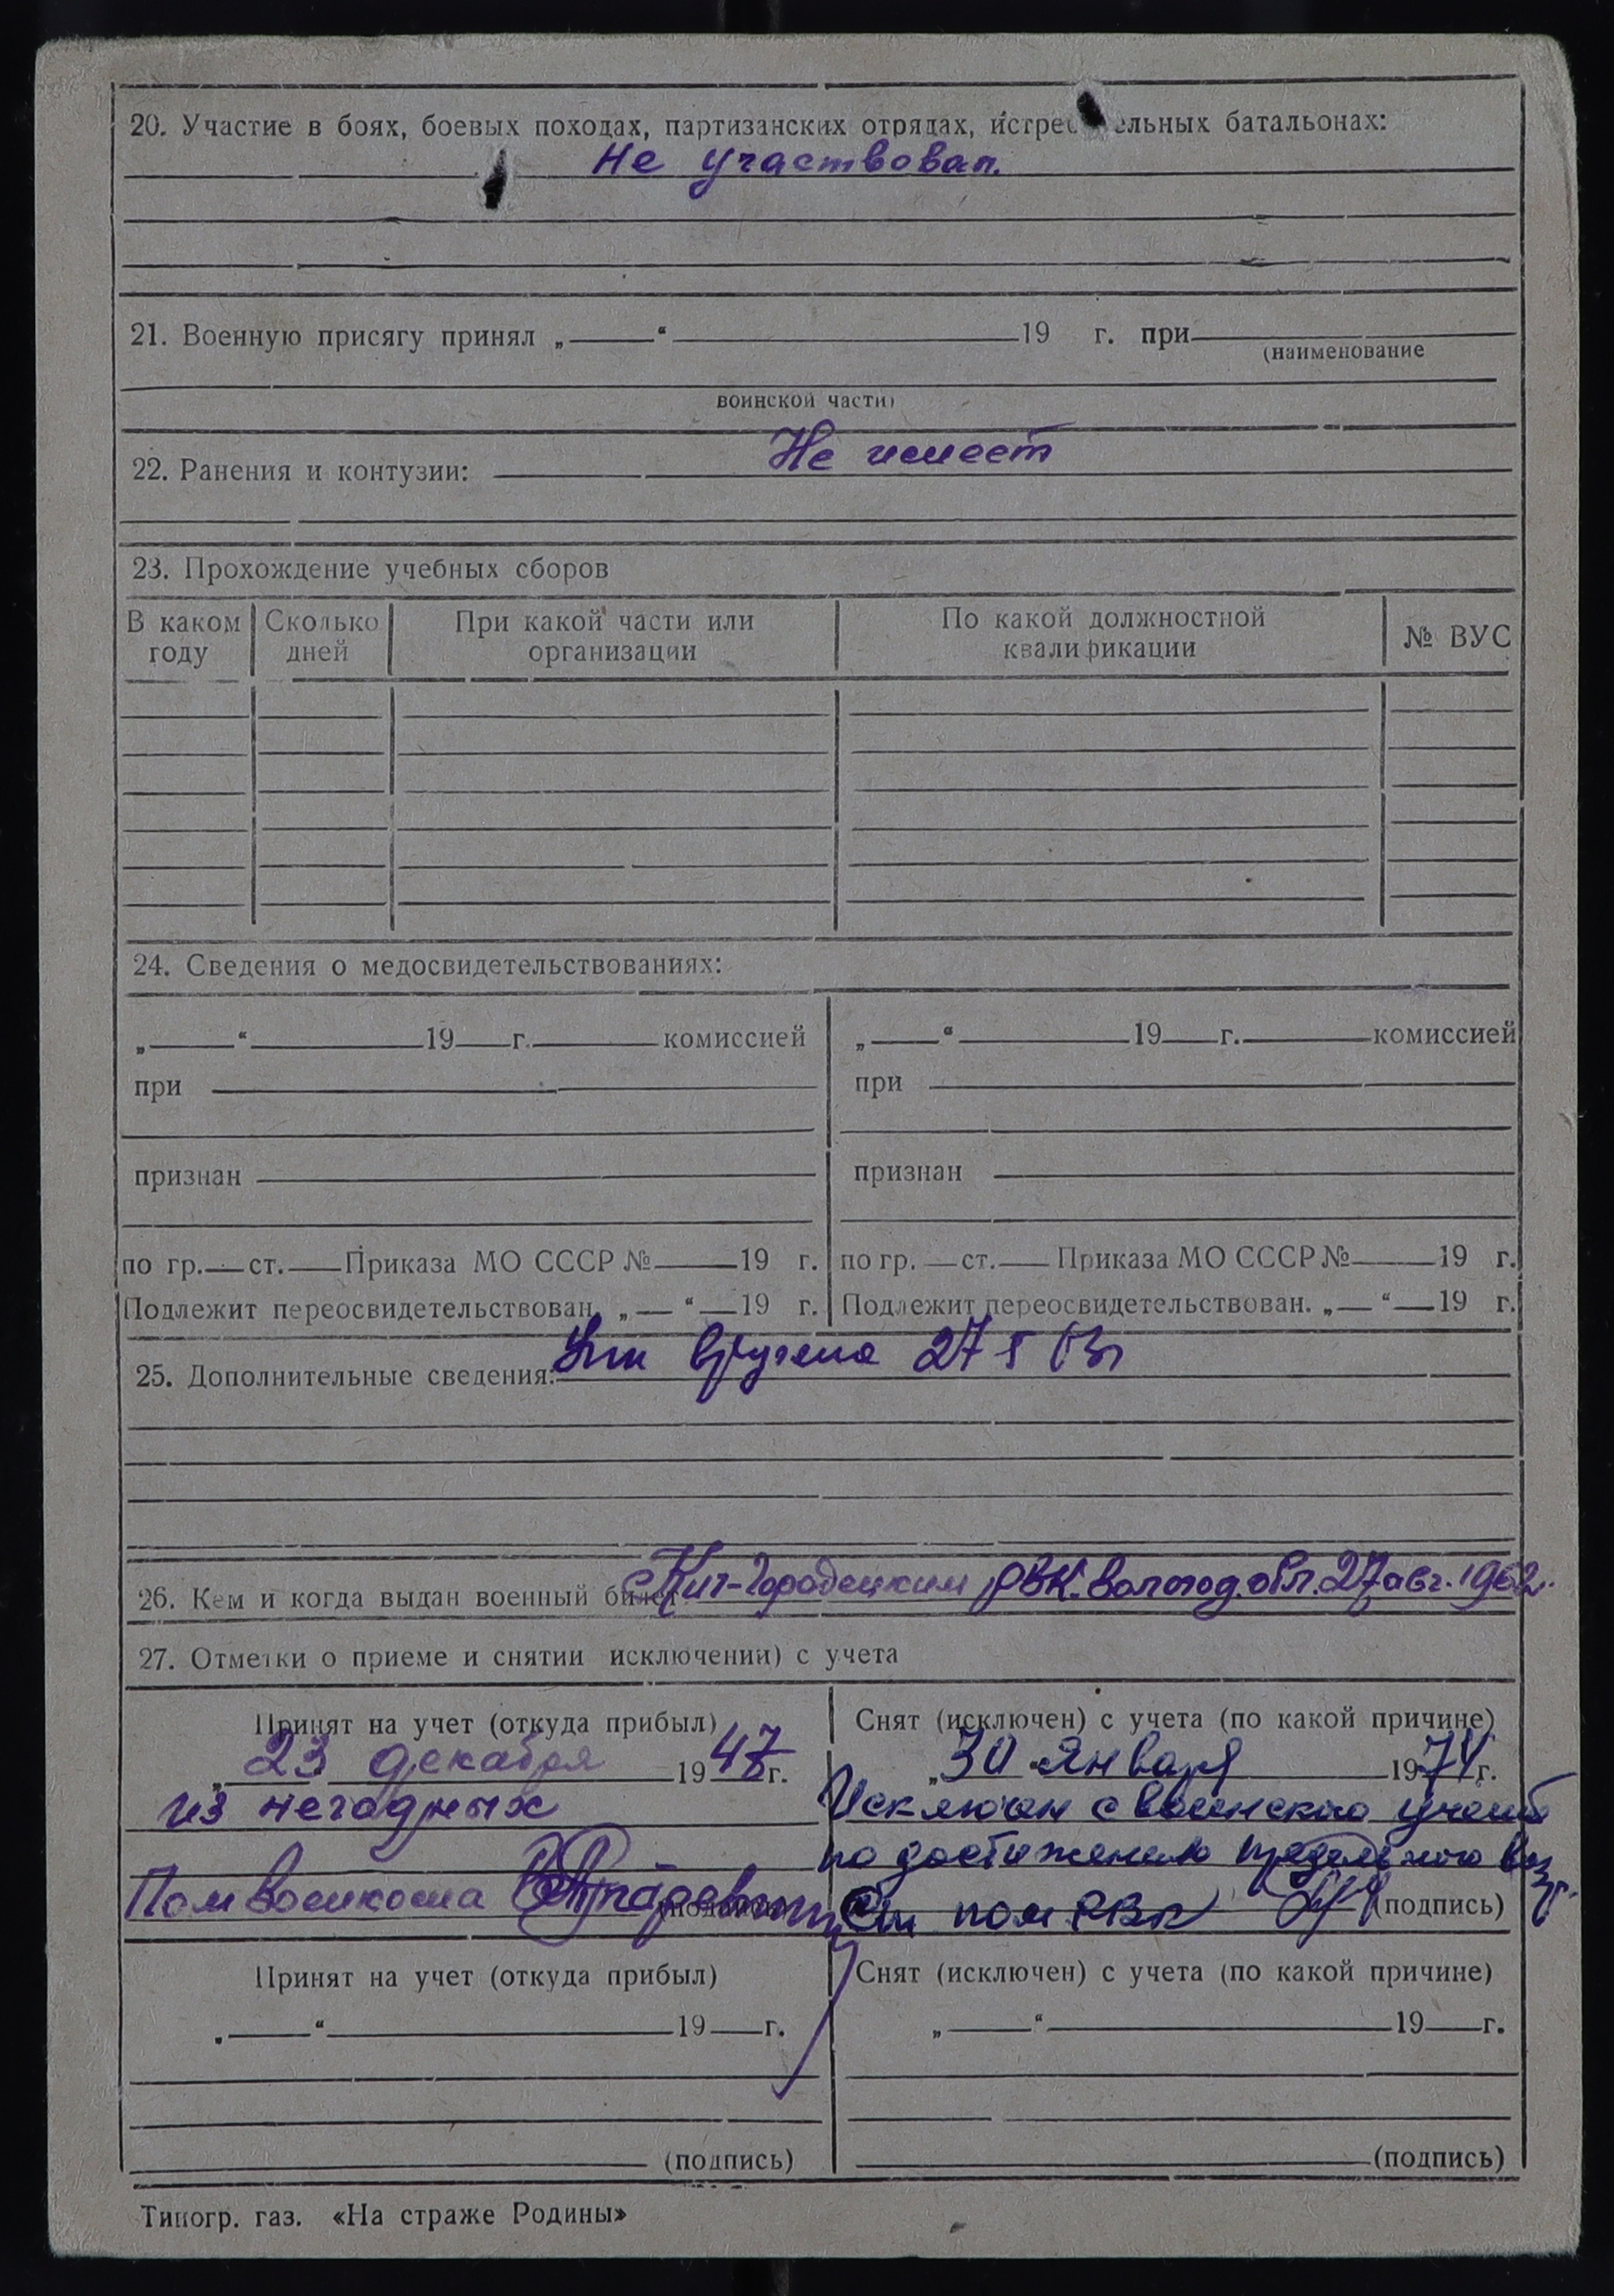 20. Участие в боях, боевых походах, партизанских отрядах, истре ельных батальонах:
Не участвовал.
21. Военную присягу принял „ “ 19 г. при
(наименование
воинской части)
22. Ранения и контузии: Не имеет
23. Прохождение учебных сборов
В каком году
Сколько дней
При какой части или организации
По какой должностной квалификации
№ ВУС
24. Сведения о медосвидетельствованиях:
„ “ 19 г. комиссией
при
признан
по гр. ст. Приказа МО СССР № 19 г.
Подлежит переосвидетельствован. „ “ 19 г.
„ “ 19 г. комиссией
при
признан
по гр. ст. Приказа МО СССР № 19 г.
Подлежит переосвидетельствован. „ “ 19 г.
25. Дополнительные сведения: вручена 27
26. Кем и когда выдан военный билет Кич-Городецким РВК. Вологод. обл. 27 авг. 1962.
27. Отметки о приеме и снятии исключении) с учета
Принят на учет (откуда прибыл)
„23 декабря 1947г.
из негодных
Пом военкома
Снят (исключен) с учета (по какой причине)
„30 января 1974г.
Исключен с воинского учета
по достижению предельного возр.
Ст пом РВК (подпись)
Принят на учет (откуда прибыл)
„ “ 19 г.
(подпись)
Снят (исключен) с учета (по какой причине)
„ “ 19 г.
(подпись)
Типогр. газ. «На страже Родины»